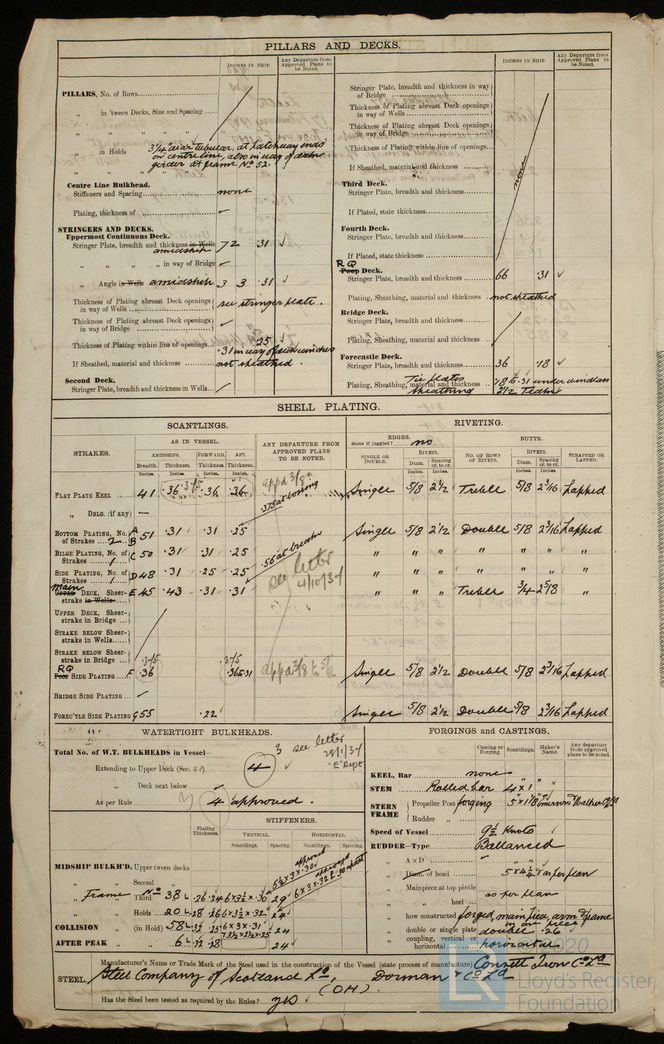 PILLARS AND DECKS.
INCHES IN SHIP.
Any Departure from Approved Plans to be Noted.
PILLARS, No. of Rows
„ in 'tween Decks, Size and Spacing
„ in Holds 3¼" diar tubular, at hatchway ends on centre line, also in way of
girder at frame No 52.
Centre Line Bulkhead.
Stiffeners and Spacing none
Plating, thickness of
STRINGERS AND DECKS.
Uppermost Continuous Deck.
Stringer Plate, breadth and thickness in Wells amidships 72 .31
„ „ „ in way of Bridge
„ Angle in Wells amidships 3 3 .31
Thickness of Plating abreast Deck openings in way of Wells see stringer plate.
Thickness of Plating abreast Deck openings in way of Bridge
Thickness of Plating within line of openings .25
.31 in way of deck winches
If Sheathed, material and thickness not sheathed.
Second Deck.
Stringer Plate, breadth and thickness in Wells
INCHES IN SHIP
Any Departure from Approved Plans to be Noted.
Stringer Plate, breadth and thickness in way of Bridge
Thickness of Plating abreast Deck openings in way of Wells
Thickness of Plating abreast Deck openings in way of Bridge
Thickness of Plating within line of openings
If Sheathed, material and thickness
none
Third Deck.
Stringer Plate, breadth and thickness
If Plated, state thickness
Fourth Deck.
Stringer Plate, breadth and thickness
If Plated, state thickness
RQ
Poop Deck.
Stringer Plate, breadth and thickness 66 .31
Plating, Sheathing, material and thickness not sheathed
Bridge Deck.
Stringer Plate, breadth and thickness
Plating, Sheathing, material and thickness
Forecastle Deck.
Stringer Plate, breadth and thickness 36 .18
Plating, Sheathing, material and thickness Tie plates .31 under windlass
sheathing 2½
SHELL PLATING.
SCANTLINGS.
RIVETING.
STRAKES.
AS IN VESSEL.
AMIDSHIPS. FORWARD. AFT.
Breadth. Thickness. Thickness. Thickness.
ANY DEPARTURE FROM APPROVED PLANS TO BE NOTED.
EDGES.
State if joggled? no
BUTTS.
SINGLE OR DOUBLE.
RIVETS.
Diam. Spacing cr. to cr.
NO. OF ROWS OF RIVETS.
RIVETS.
Diam. Spacing cr. to cr.
STRAPPED OR LAPPED.
Inches.
FLAT PLATE KEEL 41 .36 .375 .36 .36 Single 5/8 2½ Treble 5/8 2 3/16 Lapped
„ DBLG. (if any)
BOTTOM PLATING, No. of Strakes 2 A B 51 .31 .31 .25 Single 5/8 2½ Double 5/8 2 3/16 Lapped
BILGE PLATING, No. of Strakes 1 C 50 .31 .31 .25 „ „ „ „ „ „ „
SIDE PLATING, No. of Strakes 1 D 48 .31 .25 .25 „ „ „ „ „ „ „
see letter 4/10/37
Main
UPPER DECK, Sheerstrake in Wells E 45 .43 .31 .31 „ „ „ Treble 3/4 2 5/8 „
UPPER DECK, Sheerstrake in Bridge
STRAKE BELOW Sheerstrake in Wells
STRAKE BELOW Sheerstrake in Bridge .375 .375
RQ
Poop SIDE PLATING F 36 Single 5/8 2½ Double 5/8 2 3/16 Lapped
BRIDGE SIDE PLATING
FORE'C'TLE SIDE PLATING G 55 .22 Single 5/8 2½ Double 5/8 2 3/16 Lapped
WATERTIGHT BULKHEADS.
Total No. of W.T. BULKHEADS in Vessel
3 see letter "E" Dept
Extending to Upper Deck 4
„ Deck next below
As per Rule 4 approved.
STIFFENERS.
Plating Thickness.
VERTICAL. HORIZONTAL.
Scantlings. Spacing. Scantlings. Spacing.
MIDSHIP BULKH'D, Upper tween decks
„ Second „
„ Frame No Third „ 38
„ Holds 20
COLLISION „ (in Hold) 58 24
AFTER PEAK „ 6 24
FORGINGS AND CASTINGS.
Casting or Forging. Scantlings. Maker's Name. Any departure from approved plans to be noted.
KEEL, Bar none
STEM Rolled bar 4 × 1
STERN FRAME Propeller Post forging
Rudder „
Speed of Vessel 9½ Knots
RUDDER—Type Ballanced
„ A × D
„ Diam. of head as per plan
„ Mainpiece at top pintle as per plan
„ heel
„ how constructed forged, main piece, arm & frame in one piece
„ double or single plate double .26
„ coupling, vertical or horizontal horizontal
Manufacturer's Name or Trade Mark of the Steel used in the construction of the Vessel (state process of manufacture) Consett Iron Co Ld
STEEL. Steel Company of Scotland Ld, Dorman & Co Ld
(OH).
Has the Steel been tested as required by the Rules? yes
2020
Lloyd's Register
Foundation